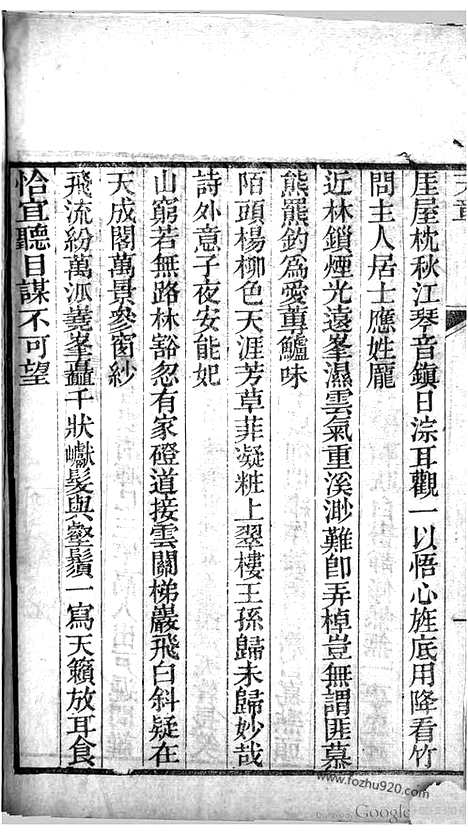 厓屋枕秋江琴音鎮日淙耳觀一以悟心旌底用降看竹
問主人居士應姓龐
近林鎖煙光遠峯濕雲氣重溪渺難卽弄棹豈無謂匪慕
熊羆釣爲愛蓴鱸味
陌頭楊柳色天涯芳草菲凝粧上翠樓王孫歸未歸妙哉
詩外意子夜安能妃
山窮若無路林豁忽有家磴道接雲關梯巖飛白斜疑在
天成閣萬景參窗紗
飛流紛萬派嶤峯矗千狀巘髮與壑鬚一寫天籟放耳食
恰宜聽目謀不可望
www.fozhu920.com
Google